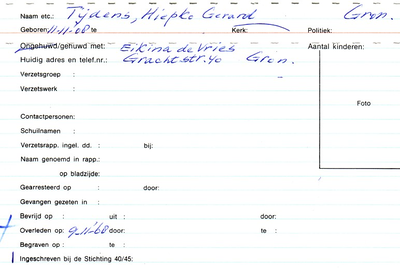 Naam etc.: Tijdens, Hiepko Gerard Gron.
Geboren 11-11-08 te Kerk: Politiek:
Ongehuwd/gehuwd met: Eikina de Vries Aantal kinderen:
Huidig adres en telef.nr.: Grachtstr. 40 Gron.
Verzetsgroep :
Verzetswerk :
Foto
Contactpersonen:
Schuilnamen :
Verzetsrapp. ingel. dd. : bij:
Naam genoemd in rapp.:
op bladzijde:
Gearresteerd op : door:
Gevangen gezeten in :
Bevrijd op : uit : door:
Overleden op: 9-11-'68 door: te :
Begraven op : te :
Ingeschreven bij de Stichting 40/45: